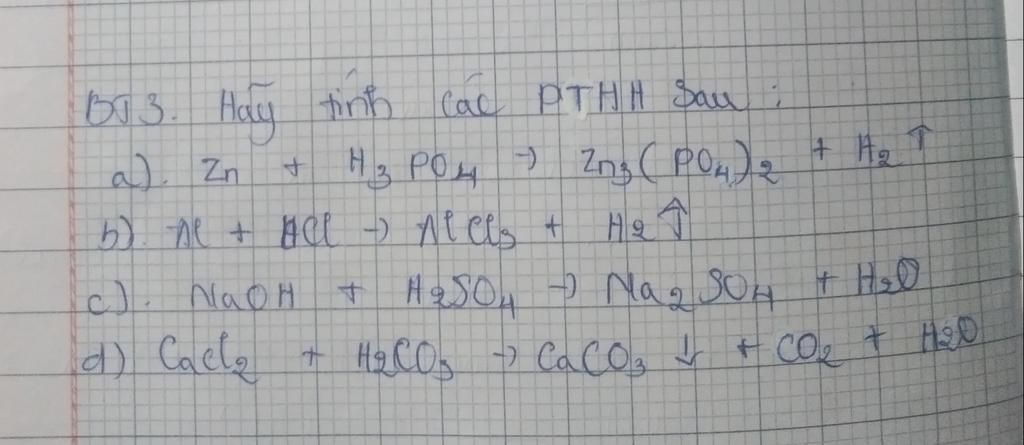 BJ3. Hãy tính các PTHH sau :
a). Zn + H3PO4 → Zn3(PO4)2 + H2↑
b). Al + HCl → AlCl3 + H2↑
c). NaOH + H2SO4 → Na2SO4 + H2O
d) CaCl2 + H2CO3 → CaCO3 ↓ + CO2 + H2O